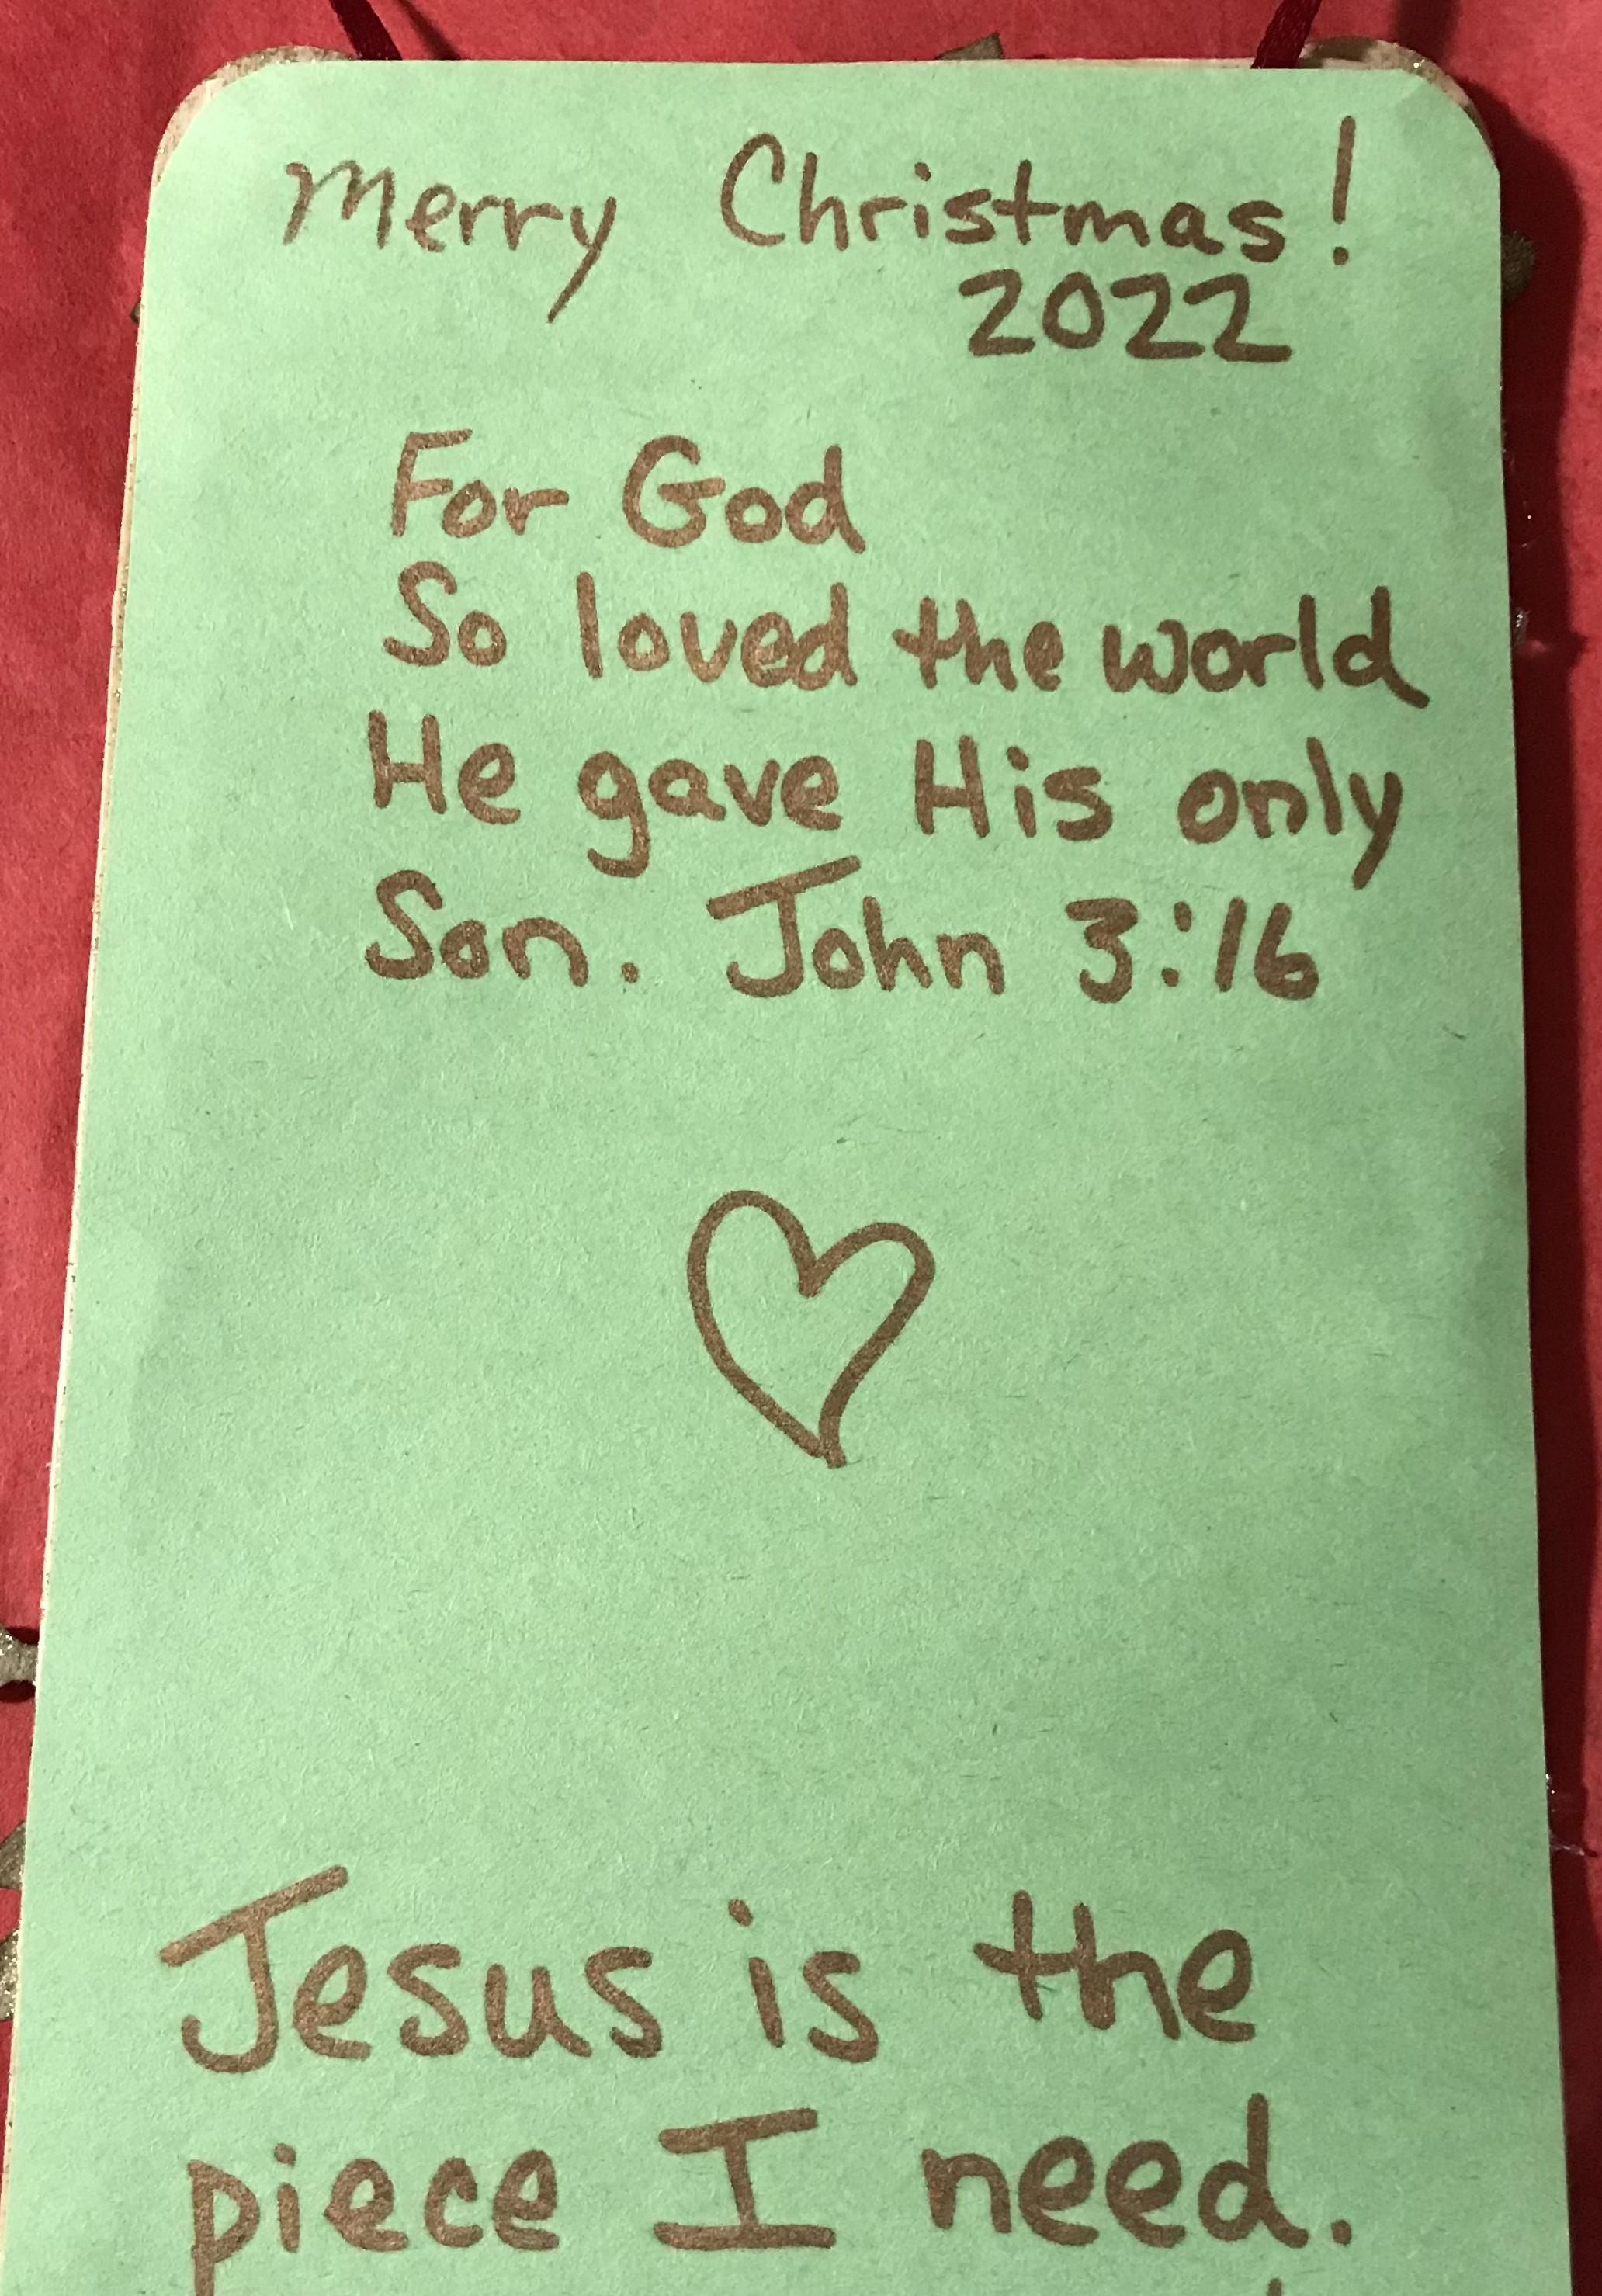 Merry Christmas!
2022
For God
So loved the world
He gave His only
Son. John 3:16
Jesus is the
piece I need.